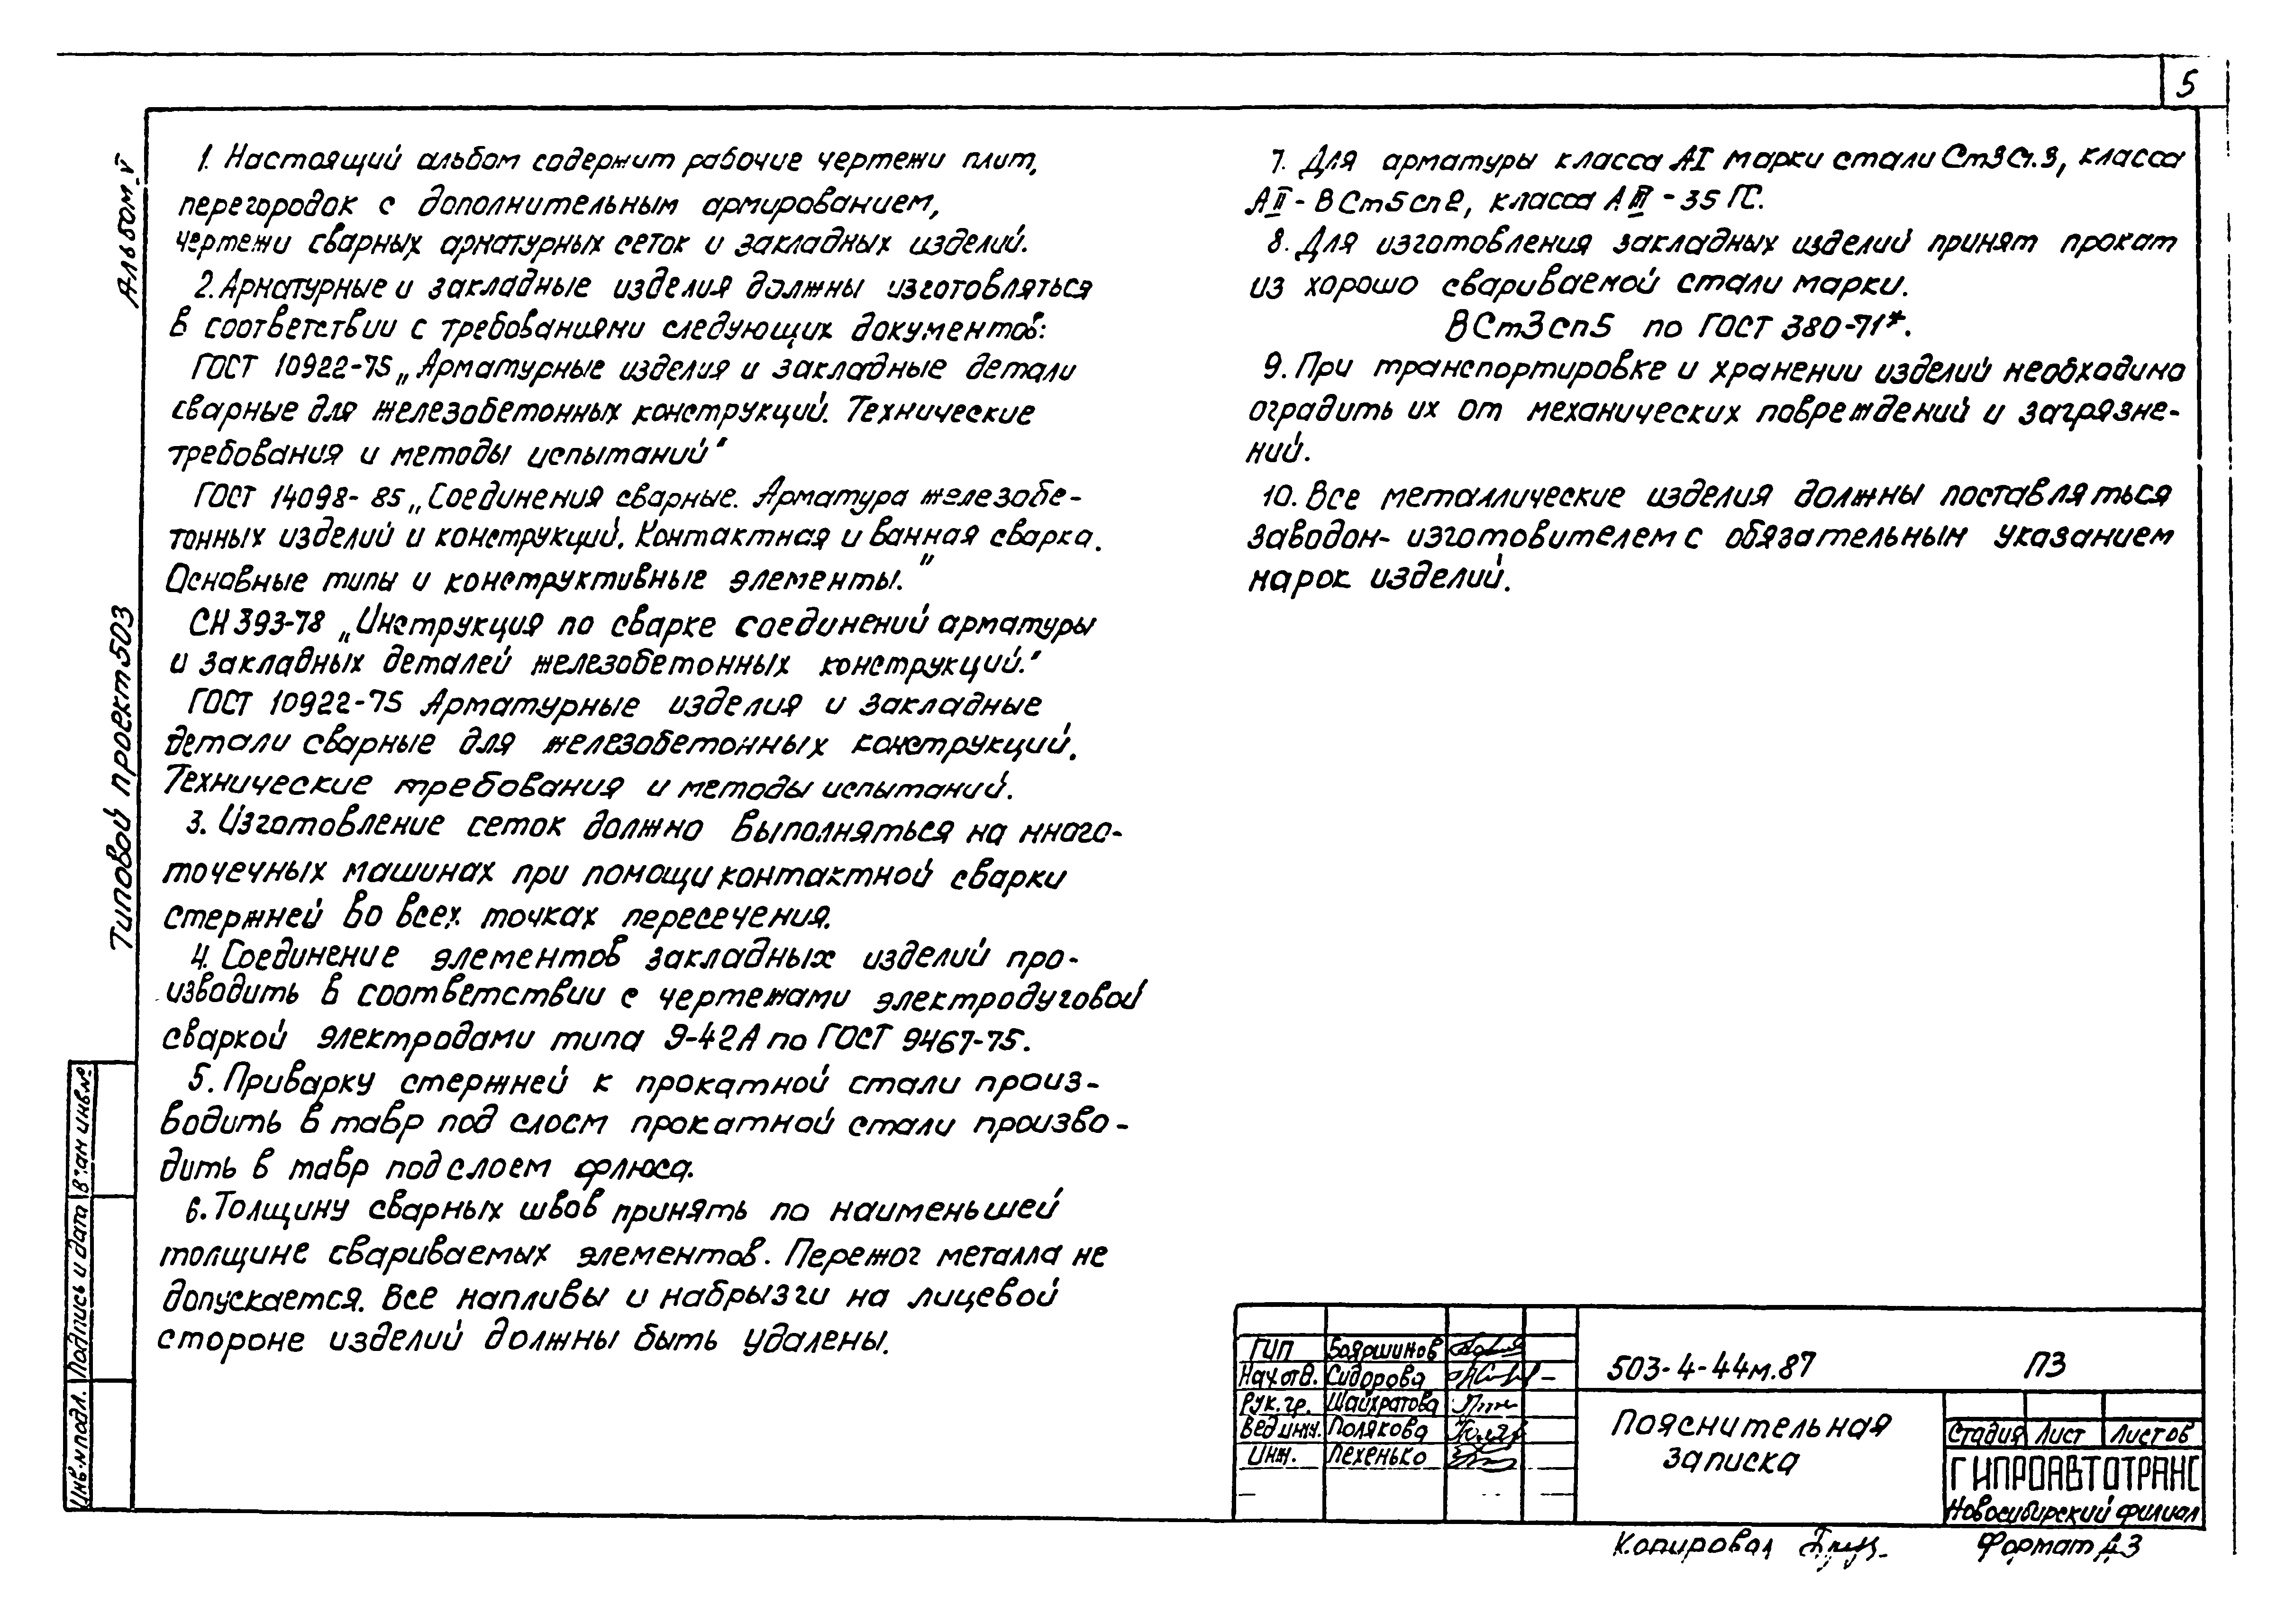 5
Альбом V
Типовой проект 503
1. Настоящий альбом содержит рабочие чертежи плит,
перегородок с дополнительным армированием,
чертежи сварных арматурных сеток и закладных изделий.
2. Арматурные и закладные изделия должны изготовляться
в соответствии с требованиями следующих документов:
ГОСТ 10922-75 „Арматурные изделия и закладные детали
сварные для железобетонных конструкций. Технические
требования и методы испытаний"
ГОСТ 14098-85 „Соединения сварные. Арматура железобе-
тонных изделий и конструкций. Контактная и ванная сварка.
Основные типы и конструктивные элементы."
СН 393-78 „Инструкция по сварке соединений арматуры
и закладных деталей железобетонных конструкций."
ГОСТ 10922-75 Арматурные изделия и закладные
детали сварные для железобетонных конструкций.
Технические требования и методы испытаний.
3. Изготовление сеток должно выполняться на много-
точечных машинах при помощи контактной сварки
стержней во всех точках пересечения.
4. Соединение элементов закладных изделий про-
изводить в соответствии с чертежами электродуговой
сваркой электродами типа Э-42А по ГОСТ 9467-75.
5. Приварку стержней к прокатной стали произ-
водить в тавр под слоем прокатной стали произво-
дить в тавр под слоем флюса.
6. Толщину сварных швов принять по наименьшей
толщине свариваемых элементов. Пережог металла не
допускается. Все напливы и набрызги на лицевой
стороне изделий должны быть удалены.
7. Для арматуры класса АI марки стали Ст3Сп.3, класса
АII - ВСт5сп2, класса АIII - 35 ГС.
8. Для изготовления закладных изделий принят прокат
из хорошо свариваемой стали марки.
ВСт3сп5 по ГОСТ 380-71*.
9. При транспортировке и хранении изделий необходимо
оградить их от механических повреждений и загрязне-
ний.
10. Все металлические изделия должны поставляться
заводом-изготовителем с обязательным указанием
марок изделий.
Инв.№подл. Подпись и дата Взам инв.№
ГИП Бояршинов
Нач.отд. Сидорова
Рук.гр. Шайхратова
Вед инж. Полякова
Инж. Лехенько
503-4-44м.87 ПЗ
Пояснительная
записка
Стадия Лист Листов
ГИПРОАВТОТРАНС
Новосибирский филиал
Копировал
Формат А3